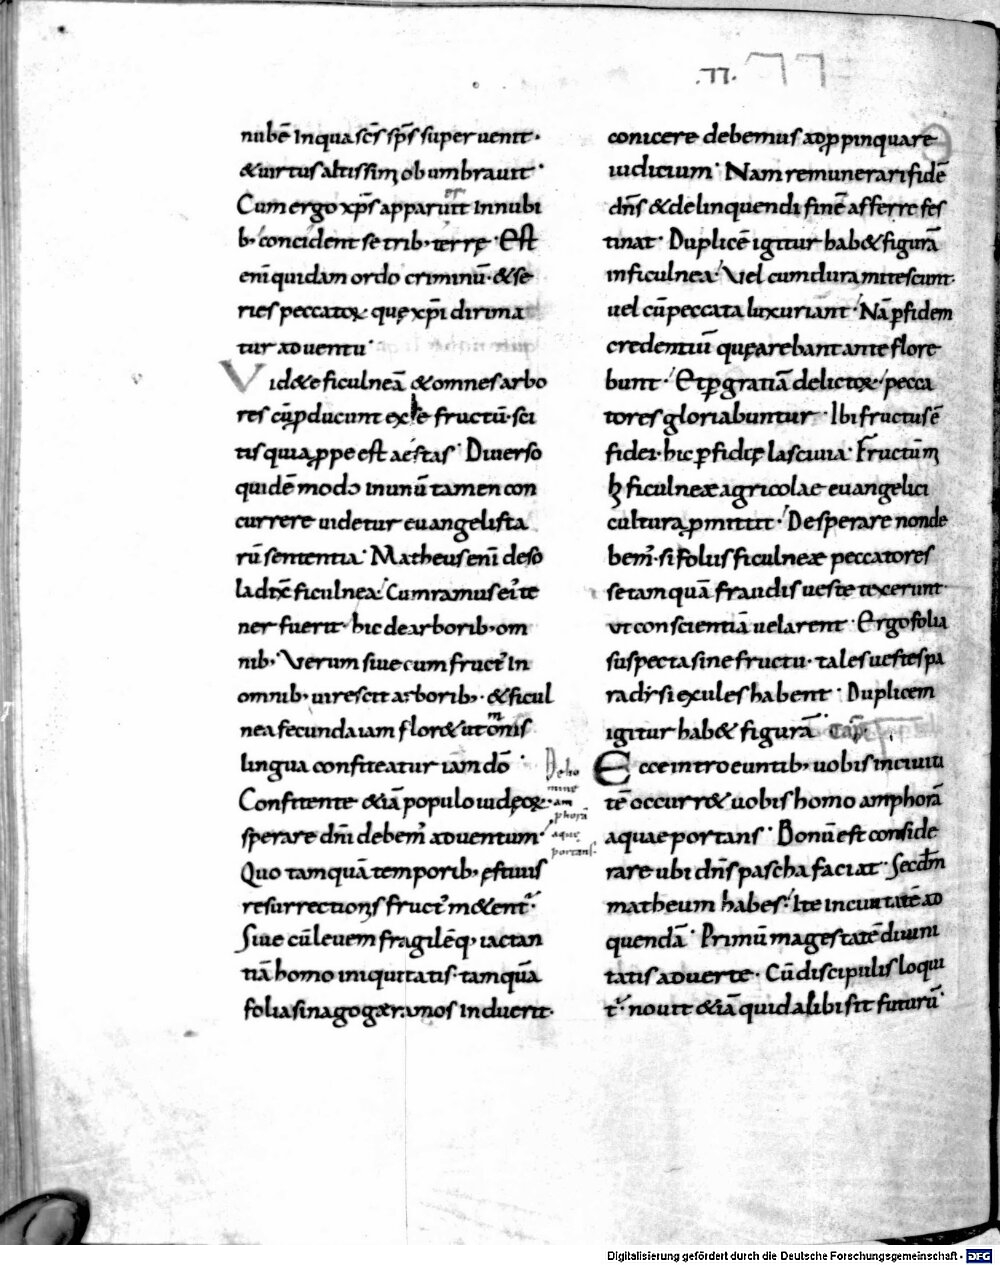 .77. 77
nubē Inqua scs̄ sps̄ superuenit·
&uirtus altissimi obumbrauit·
Cumergo xps̄ apparuit Innubi
b; concident se trib; terrę· Est
enī quidam ordo criminū· &se
ries peccatoꝝ quę xp̄i diruna
tur aduentu·
Vid&e ficulneā &omnes arbo
res cū ꝓducunt ex se fructū· sci
tis quia ꝓpe est aestas· Diuerso
quidē modo inunū tamen con
currere uidetur euangelista
rū sententia· Matheus enī deso
la dix̄ ficulnea· Cumramus ei᾽ te
ner fuerit· hic dearborib; om
nib;· Verum siue cum fruct᾽ In
omnib; uirescit arborib;· &ficul
nea fecunda iam flor& ut omnis
lingua confiteatur iam dō·
Confitente &iā populo iudęoꝝ·
sperare dn̄i debem᾽ aduentum·
Quo tamquā temporib; ęstiuis
resurrectionis fruct᾽ m&ent᾽·
Siue cū leuem fragilēq; iactan
tiā homo iniquitatis· tamquā
folia sinagogae ramos induerit·
conicere debemus adpropinquare
iudicium· Nam remunerari fidē
dn̄s &delinquendi finē afferre fes
tinat· Duplicē igitur hab& figurā
inficulnea· Vel cum dura mitescunt·
uel cū peccata luxuriant· Nā ꝑ fidem
credentiū quęarebant ante flore
bunt· Et ꝑ gratiā delictoꝝ· pecca
tores gloriabuntur· Ibi fructus ē
fidei· hic ꝑfidię lasciuia· Fructum
ficulneae agricolae euangelici
cultura ꝓmittit· Desperare nonde
bem᾽· si foliis ficulneae peccatores
setamquā fraudis ueste texerunt
ut conscientiā uelarent· Ergo folia
suspecta sine fructu· tales uestes pa
radysi exules habent· Duplicem
igitur hab& figurā·
Ecce introeuntib; uobis inciuita
tē occurr& uobis homo amphorā
aquae portans· Bonū est conside
rare ubi dn̄s pascha faciat· Secdm̄
matheum habes· Ite inciuitatē ad
quendā· Primū magestatē diuini
tatis aduerte· Cū discipulis loqui
t᾽· nouit &iā quid alibi sit futurū·
De ho
mine
am
phorā
aquę
portans·
Digitalisierung gefördert durch die Deutsche Forschungsgemeinschaft - DFG